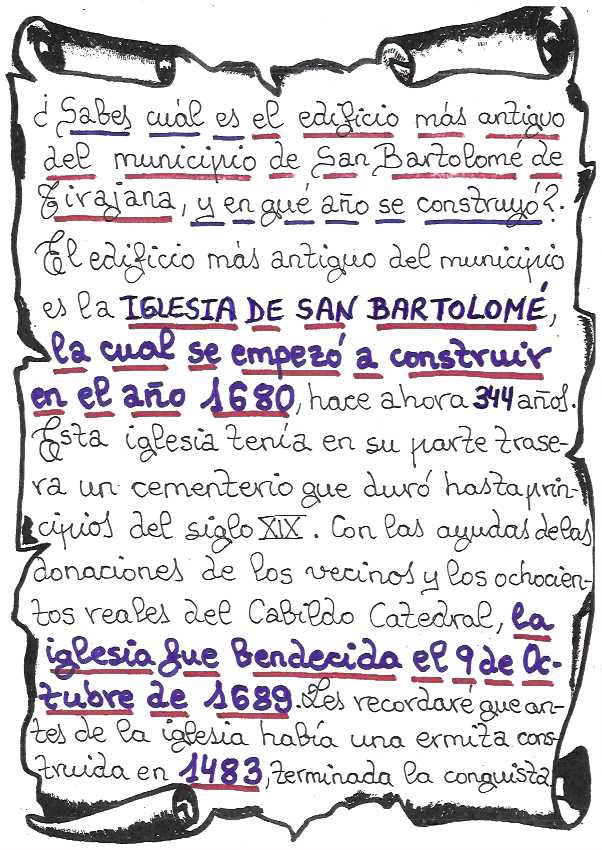 ¿Sabes cuál es el edificio más antiguo
del municipio de San Bartolomé de
Tirajana, y en qué año se construyó?.
El edificio más antiguo del municipio
es la IGLESIA DE SAN BARTOLOMÉ,
la cual se empezó a construir
en el año 1680, hace ahora 344 años.
Esta iglesia tenía en su parte trase-
ra un cementerio que duró hasta prin-
cipios del siglo XIX. Con las ayudas de las
donaciones de los vecinos y los ochocien-
tos reales del Cabildo Catedral, la
iglesia fue bendecida el 9 de Oc-
tubre de 1689. Les recordaré que an-
tes de la iglesia había una ermita cons-
truida en 1483, terminada la conquista